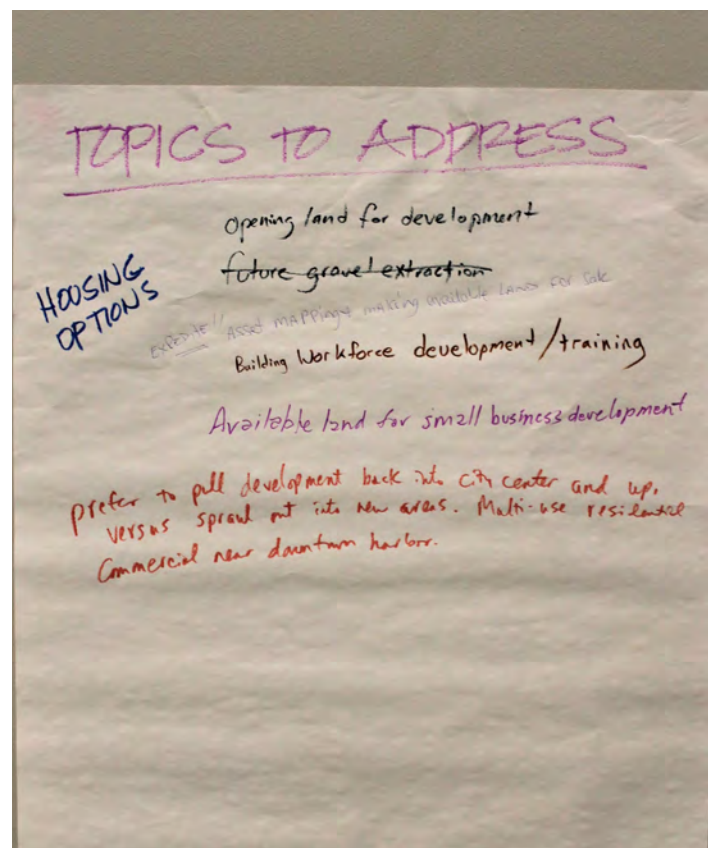 TOPICS TO ADDRESS
Opening land for development
future gravel extraction
HOUSING
OPTIONS
EXPEDITE!! ASSET MAPPING & making available LAND for sale
Building Workforce development/training
Available land for small business development
prefer to pull development back into city center and up,
versus sprawl out into new areas. Multi-use residential
Commercial near downtown harbor.